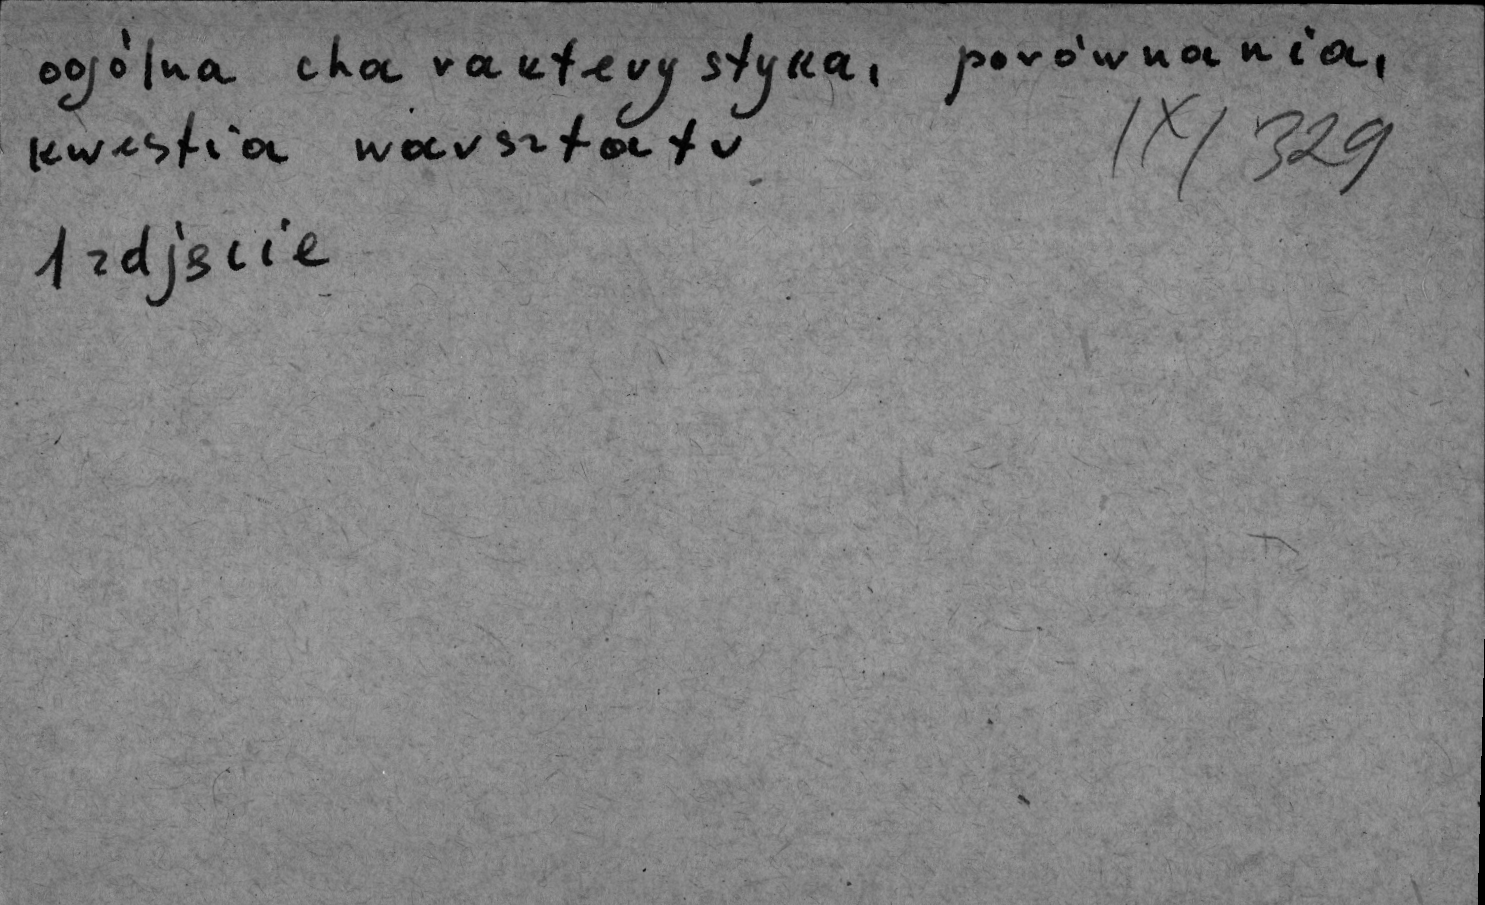 ogólna charakterystyka, porównania,
kwestia warsztatu IX/329
1 zdjęcie